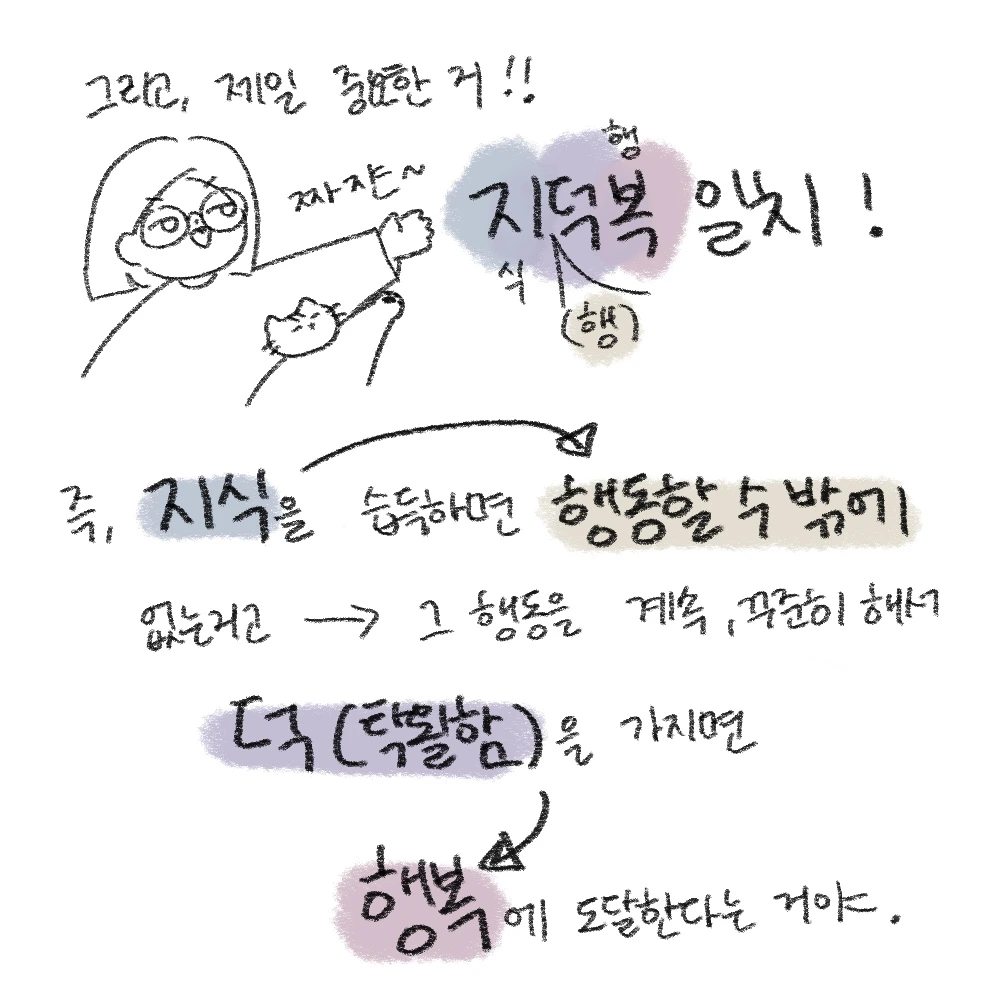 그리고, 제일 중요한 거!!
짜쟌~
행
지덕복 일치!
식
(행)
즉, 지식을 습득하면 행동할 수 밖에
없는리고 → 그 행동을 계속, 꾸준히 해서
덕(탁월함)을 가지면
행복에 도달한다는 거야.